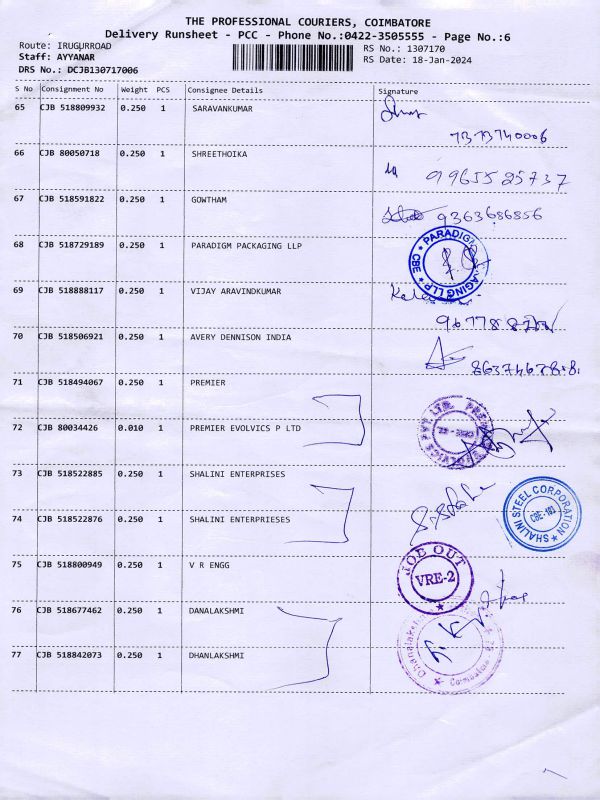 THE PROFESSIONAL COURIERS, COIMBATORE
Delivery Runsheet - PCC - Phone No.:0422-3505555 - Page No.:6
Route: IRUGURROAD
Staff: AYYANAR
DRS No.: DCJB130717006
RS No.: 1307170
RS Date: 18-Jan-2024
S No Consignment No Weight PCS Consignee Details Signature
65 CJB 518809932 0.250 1 SARAVANKUMAR
7373740006
66 CJB 80050718 0.250 1 SHREETHOIKA
9965525737
67 CJB 518591822 0.250 1 GOWTHAM 9363686856
68 CJB 518729189 0.250 1 PARADIGM PACKAGING LLP
69 CJB 518888117 0.250 1 VIJAY ARAVINDKUMAR
70 CJB 518506921 0.250 1 AVERY DENNISON INDIA
71 CJB 518494067 0.250 1 PREMIER
72 CJB 80034426 0.010 1 PREMIER EVOLVICS P LTD
73 CJB 518522885 0.250 1 SHALINI ENTERPRISES
SHALINI STEEL CORPORATION
74 CJB 518522876 0.250 1 SHALINI ENTERPRIESES
75 CJB 518800949 0.250 1 V R ENGG
JOE OUT
VRE-2
76 CJB 518677462 0.250 1 DANALAKSHMI
77 CJB 518842073 0.250 1 DHANLAKSHMI